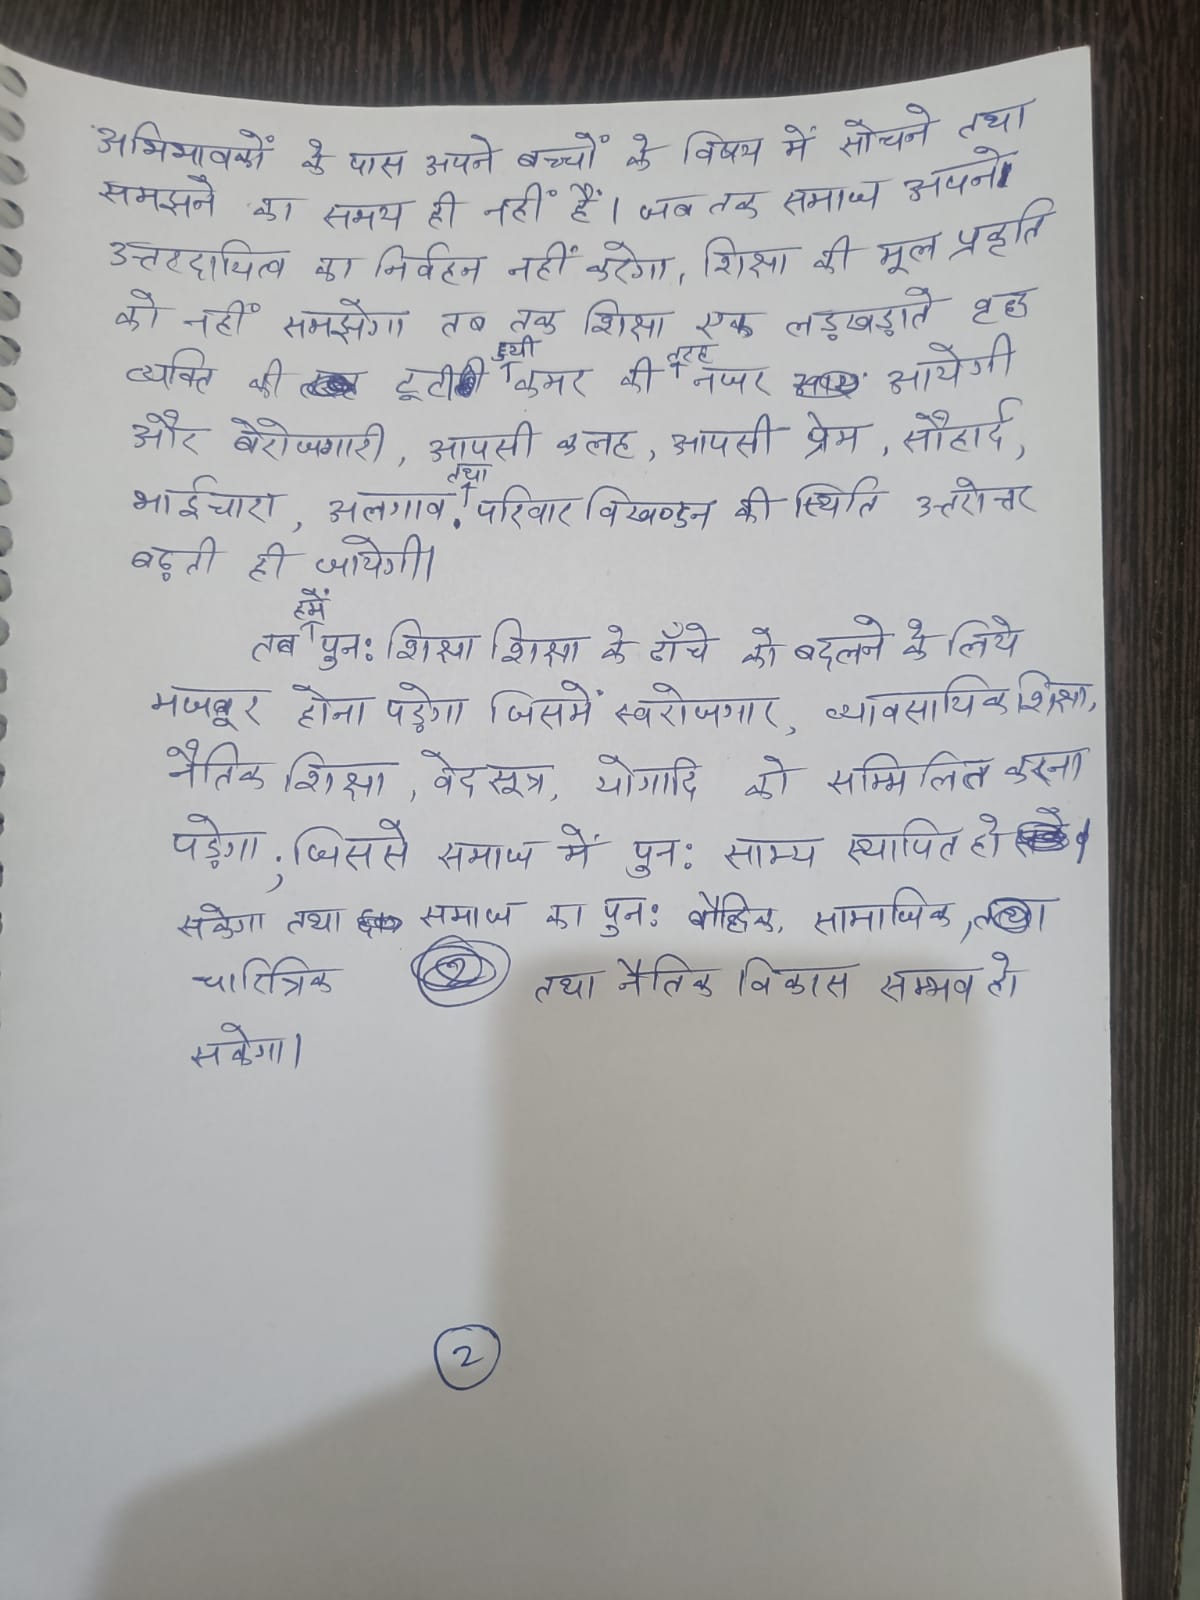 अभिभावकों के पास अपने बच्चों के विषय में सोचने तथा
समझने का समय ही नहीं है। जब तक समाज अपने
उत्तरदायित्व का निर्वहन नहीं करेगा, शिक्षा की मूल प्रकृति
को नहीं समझेगा तब तक शिक्षा एक लड़खड़ाते वृद्ध
व्यक्ति की टूटी हुयी कमर की तरह नजर आयेगी
और बेरोजगारी, आपसी कलह, आपसी प्रेम, सौहार्द,
भाईचारा, अलगाव तथा परिवार विखण्डन की स्थिति उत्तरोत्तर
बढ़ती ही जायेगी।
तब हमें पुनः शिक्षा शिक्षा के ढाँचे को बदलने के लिये
मजबूर होना पड़ेगा जिसमें स्वरोजगार, व्यावसायिक शिक्षा,
नैतिक शिक्षा, वेदसूत्र, योगादि को सम्मिलित करना
पड़ेगा, जिससे समाज में पुनः साम्य स्थापित हो
सकेगा तथा समाज का पुनः बौद्धिक, सामाजिक,
चारित्रिक तथा नैतिक विकास सम्भव हो
सकेगा।
2